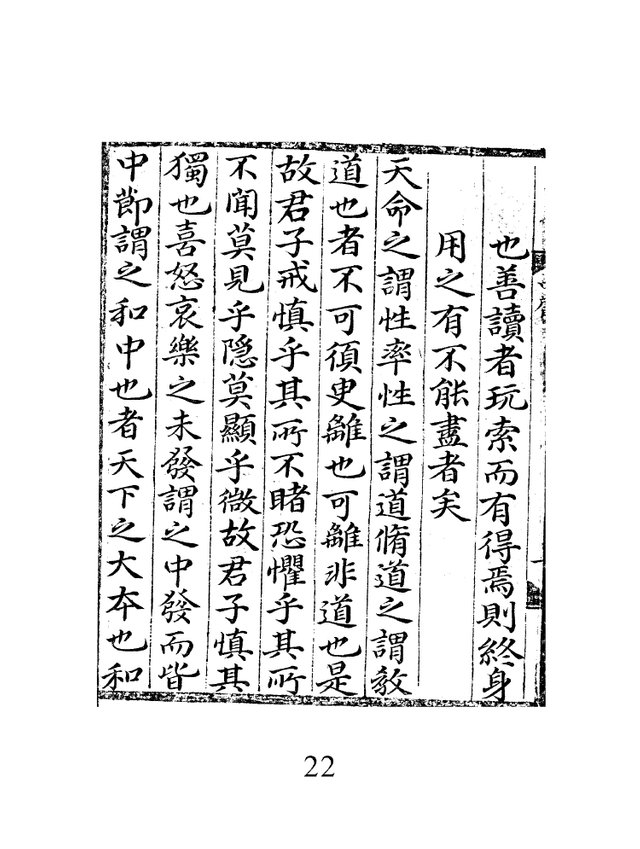 也善讀者玩索而有得焉則終身
用之有不能盡者矣
天命之謂性率性之謂道脩道之謂教
道也者不可須臾離也可離非道也是
故君子戒慎乎其所不睹恐懼乎其所
不聞莫見乎隱莫顯乎微故君子慎其
獨也喜怒哀樂之未發謂之中發而皆
中節謂之和中也者天下之大本也和
22